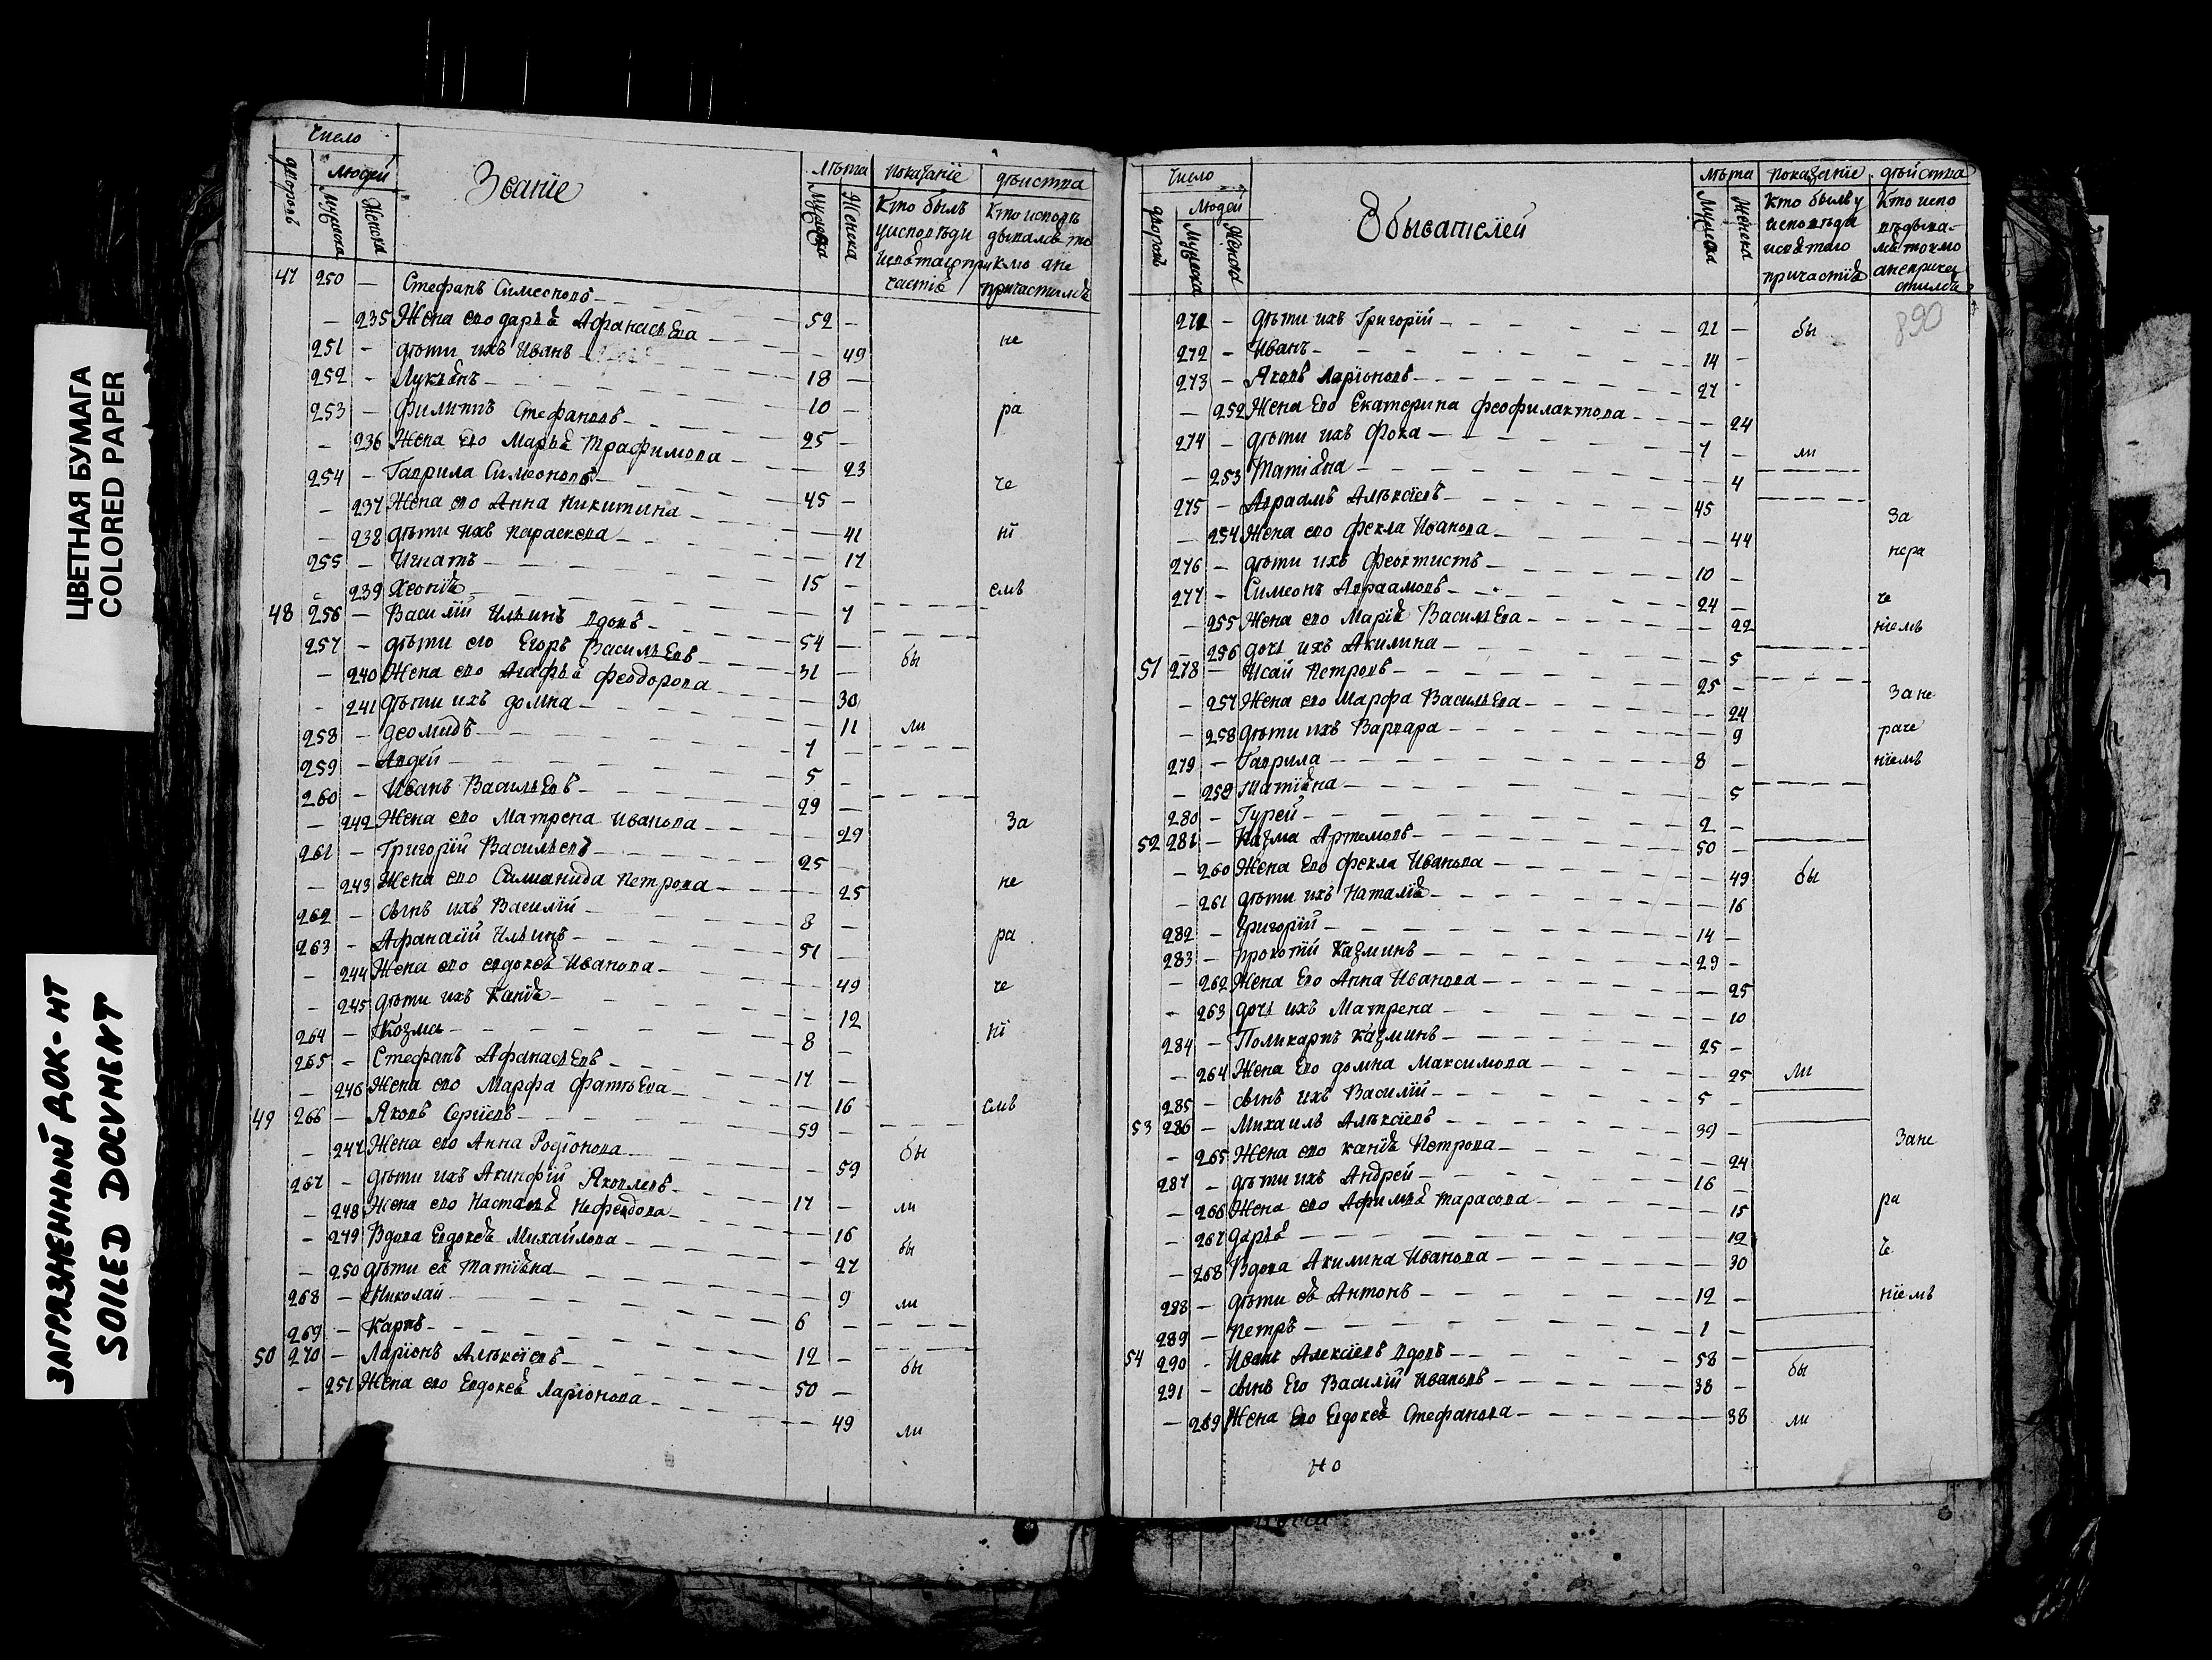 ЦВЕТНАЯ БУМАГА
COLORED PAPER
ЗАГРЯЗНЕННЫЙ ДОК-НТ
SOILED DOCUMENT
Число
дворовъ Людей Званїе Лѣта Показанїе дѣйства
Мужеска Женска Мужеска Женска Кто былъ Кто исповѣ
у исповѣди дывался то
и святаго при кмо а не
частїя причастился
47 250 — Стефанъ Симеоновъ 52 —
— 235 Жена его дарья Афанасьева — 49 не
251 — дѣти ихъ Иванъ 18 —
252 — Лукьянъ 10 —
253 — Филиппъ Стефановъ 25 — ра
— 236 Жена Его Марья Трафимова — 23
254 — Гаврила Симеоновъ 45 — че
— 237 Жена его Анна Никитина — 41
— 238 дѣти ихъ Параскева — 17 нї
255 — Игнатъ 15 —
— 239 Хеонїя — 7 емъ
48 256 — Василїй Ильинъ вдовъ 54 —
257 — дѣти его Егоръ Васильевъ 31 — бы
— 240 Жена его Агафья Феодорова — 30
— 241 дѣти ихъ домна — 11 ли
258 — деомидъ 7 —
259 — Авдей 5 —
260 — Иванъ Васильевъ 29 —
— 242 Жена его Матрена Иванова — 29 За
261 — Григорїй Васильевъ 25 —
— 243 Жена его Саманида Петрова — 25 не
262 — сынъ ихъ Василїй 8 —
263 — Афанасїй Ильинъ 51 — ра
— 244 Жена его евдокея Иванова — 49 че
— 245 дѣти ихъ Капїя — 12
264 — Козма 8 — нї
265 — Стефанъ Афанасьевъ 17 —
— 246 Жена его Марфа Фатьева — 16 емъ
49 266 — Яковъ Сергїевъ 59 —
— 247 Жена его Анна Родїонова — 59 бы
267 — дѣти ихъ Акинфїй Яковлевъ 17 —
— 248 Жена его Настасья Нефедова — 16 ли
— 249 Вдова Евдокея Михайлова — 27 бы
— 250 дѣти ея Татїяна — 9
268 — Николай 6 — ли
269 — Карпъ 12 —
50 270 — Ларїонъ Алѣксїевъ 50 — бы
— 251 Жена его Евдокея Ларїонова — 49 ли
Число
дворовъ Людей Обывателей Лѣта Показанїе дѣйства
Мужеска Женска Мужеска Женска Кто былъ у Кто испо
исповѣди вѣдыва-
и святаго лся токмо
причастїя а не приче
стился
890
271 — дѣти ихъ Григорїй 21 — бы
272 — Иванъ 14 —
273 — Яковъ Ларїоновъ 27 —
— 252 Жена Его Екатерина Феофилактова — 24
274 — дѣти ихъ Фока 7 — ли
— 253 Татїяна — 4
275 — Авраамъ Алѣксїевъ 45 — За
— 254 Жена его Фекла Иванова — 44 нера
276 — дѣти ихъ Феоктистъ 10 —
277 — Симеонъ Авраамовъ 24 — че
— 255 Жена его Марїя Васильева — 22 нїемъ
— 256 дочь ихъ Акилина — 5
51 278 — Исай Петровъ 25 — За не
— 257 Жена его Марфа Васильева — 24
— 258 дѣти ихъ Варвара — 9 раче
279 — Гаврила 8 — нїемъ
— 259 Татїяна — 5
280 — Гурей 2 —
52 281 — Казма Артемовъ 50 —
— 260 Жена Его Фекла Иванова — 49 бы
— 261 дѣти ихъ Наталїя — 16
282 — Григорїй 14 —
283 — Прокопїй Казминъ 29 —
— 262 Жена Его Анна Иванова — 25
— 263 дочь ихъ Матрена — 10
284 — Поликарпъ Казминъ 25 —
— 264 Жена Его домна Максимова — 25 ли
285 — сынъ ихъ Василїй 5 —
53 286 — Михаилъ Алѣксїевъ 39 — Зане
— 265 Жена его капїя Петрова — 24
287 — дѣти ихъ Андрей 16 —
— 266 Жена его Афимья Тарасова — 15 ра
— 267 дарья — 12 че
— 268 Вдова Акилина Иванова — 30
288 — дѣти ея Антонъ 12 — нїемъ
289 — Петръ 1 —
54 290 — Иванъ Алексїевъ вдовъ 58 — бы
291 — сынъ Его Василїй Ивановъ 38 —
— 269 Жена Его Евдокея Стефанова — 38 ли
но